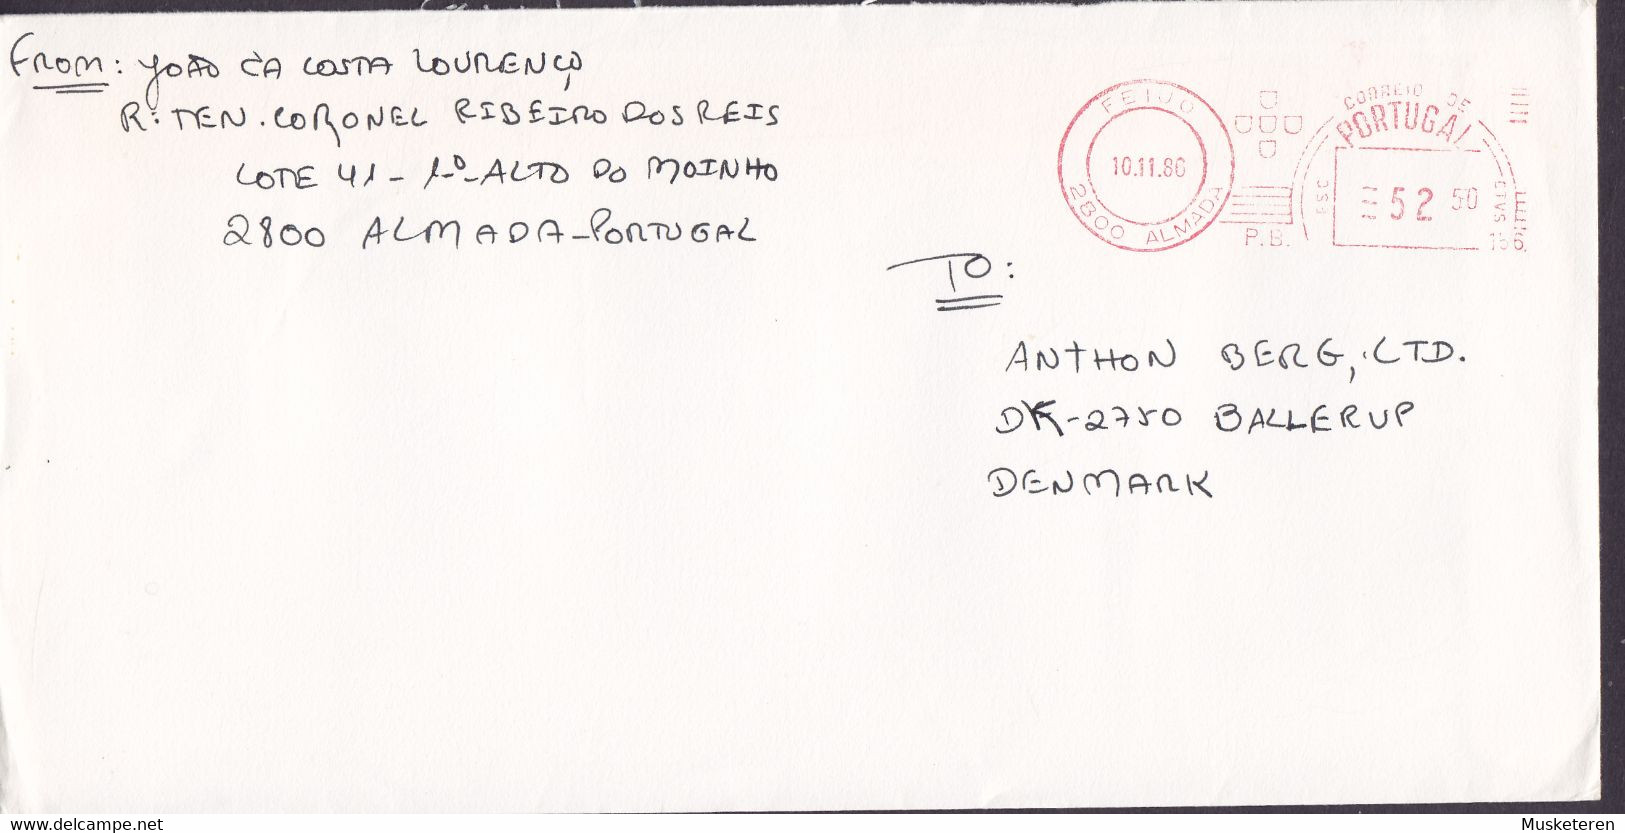 FROM: JOÃO DA COSTA LOURENÇO
R: TEN. CORONEL RIBEIRO DOS REIS
LOTE 41 - 1º - ALTO DO MOINHO
2800 ALMADA - PORTUGAL
FEIJO
10.11.86
2800 ALMADA
P.B.
CORREIO DE
PORTUGAL
ESC
52 50
CTVS
TO:
ANTHON BERG, LTD.
DK-2750 BALLERUP
DENMARK
www.delcampe.net
Musketeren